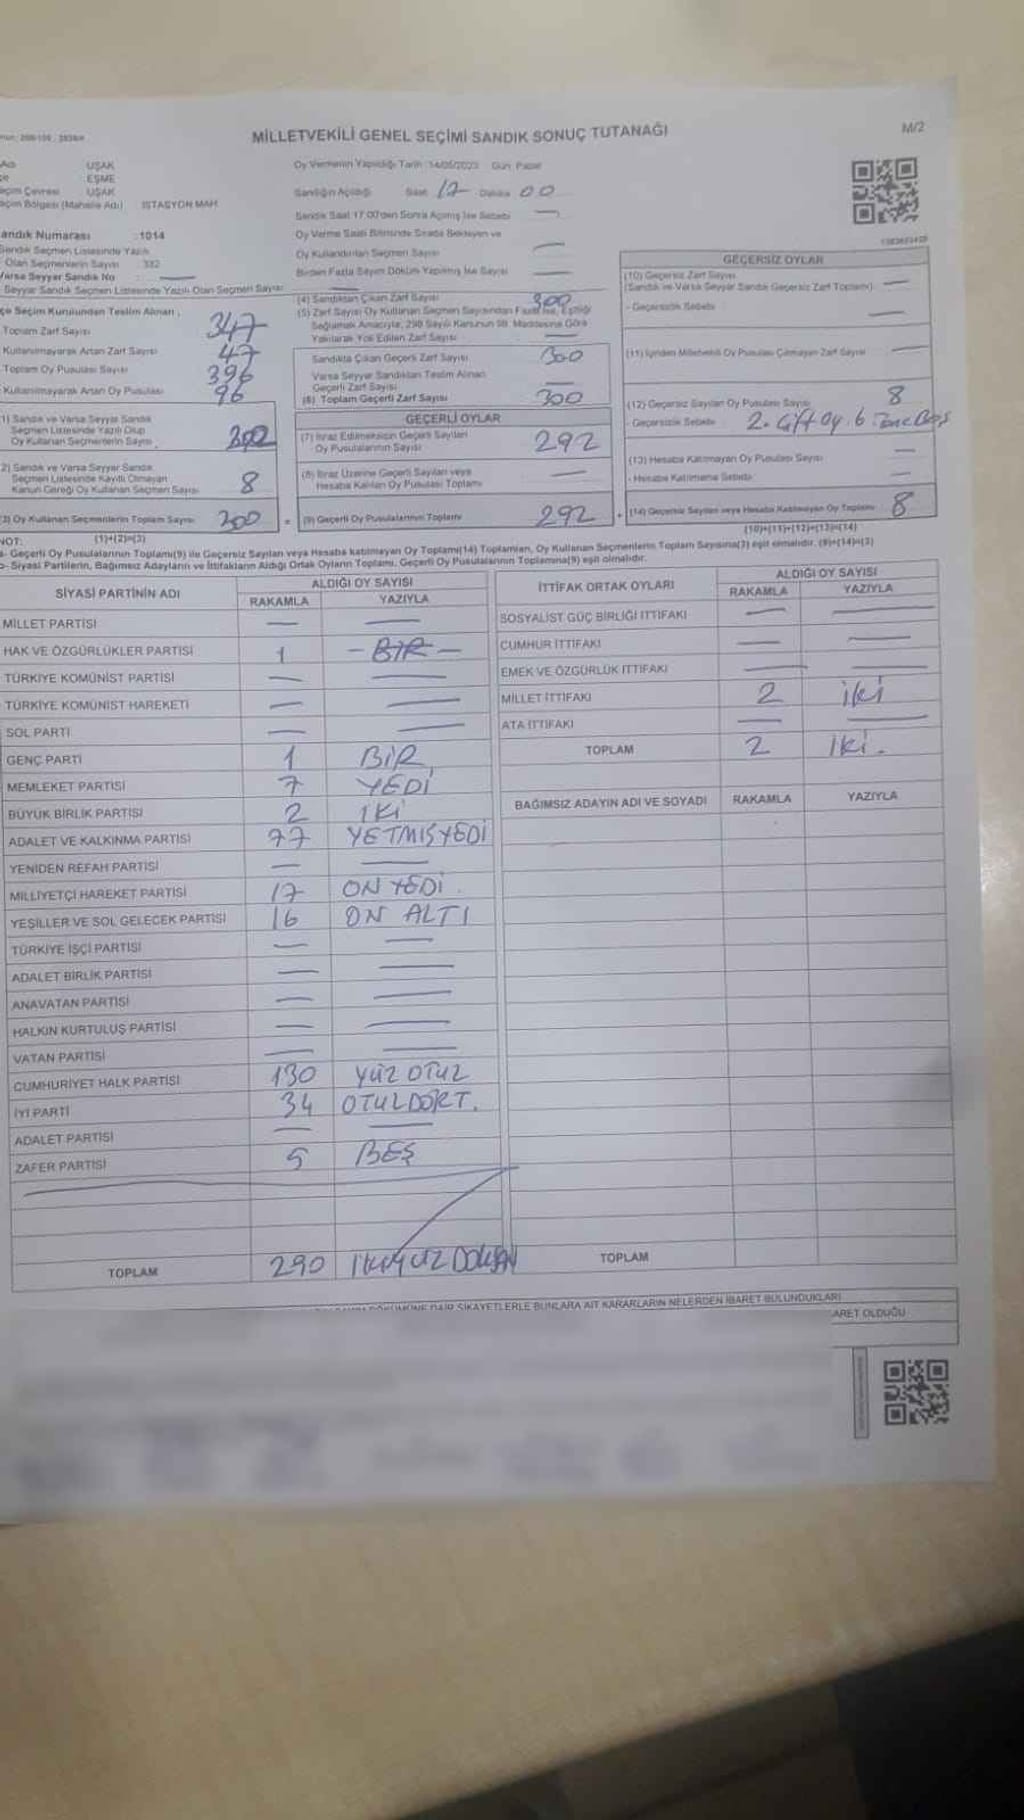 MİLLETVEKİLİ GENEL SEÇİMİ SANDIK SONUÇ TUTANAĞI
M/2
UŞAK
EŞME
Seçim Çevresi UŞAK
Seçim Bölgesi (Mahalle Adı) İSTASYON MAH.
Oy Vermenin Yapıldığı Tarih :14/05/2023 Gün: Pazar
Sandığın Açıldığı Saat 17 Dakika 00
Sandık Saat 17:00'den Sonra Açılmış İse Sebebi —
Oy Verme Saati Bitiminde Sırada Bekleyen ve
Oy Kullandırılan Seçmen Sayısı —
Birden Fazla Sayım Döküm Yapılmış İse Sayısı —
Sandık Numarası :1014
Sandık Seçmen Listesinde Yazılı
Olan Seçmenlerin Sayısı : 332
Varsa Seyyar Sandık No : —
Seyyar Sandık Seçmen Listesinde Yazılı Olan Seçmen Sayısı —
İlçe Seçim Kurulundan Teslim Alınan
Toplam Zarf Sayısı 347
Kullanılmayarak Artan Zarf Sayısı 47
Toplam Oy Pusulası Sayısı 396
Kullanılmayarak Artan Oy Pusulası 96
(1) Sandık ve Varsa Seyyar Sandık
Seçmen Listesinde Yazılı Olup
Oy Kullanan Seçmenlerin Sayısı
(2) Sandık ve Varsa Seyyar Sandık
Seçmen Listesinde Kayıtlı Olmayan
Kanun Gereği Oy Kullanan Seçmen Sayısı 8
(3) Oy Kullanan Seçmenlerin Toplam Sayısı 300
(1)+(2)=(3)
(4) Sandıktan Çıkan Zarf Sayısı 300
(5) Zarf Sayısı Oy Kullanan Seçmen Sayısından Fazla İse, Eşitliği
Sağlamak Amacıyla, 298 Sayılı Kanunun 98. Maddesine Göre
Yakılarak Yok Edilen Zarf Sayısı —
Sandıkta Çıkan Geçerli Zarf Sayısı 300
Varsa Seyyar Sandıktan Teslim Alınan
Geçerli Zarf Sayısı —
(6) Toplam Geçerli Zarf Sayısı 300
GEÇERLİ OYLAR
(7) İtiraz Edilmeksizin Geçerli Sayılan
Oy Pusulalarının Sayısı 292
(8) İtiraz Üzerine Geçerli Sayılan veya
Hesaba Katılan Oy Pusulası Toplamı —
= (9) Geçerli Oy Pusulalarının Toplamı 292 +
GEÇERSİZ OYLAR
(10) Geçersiz Zarf Sayısı
(Sandık ve Varsa Seyyar Sandık Geçersiz Zarf Toplamı) —
- Geçersizlik Sebebi —
(11) İçinden Milletvekili Oy Pusulası Çıkmayan Zarf Sayısı —
(12) Geçersiz Sayılan Oy Pusulası Sayısı 8
- Geçersizlik Sebebi 2. Çift Oy. 6 Tane Boş
(13) Hesaba Katılmayan Oy Pusulası Sayısı —
- Hesaba Katılmama Sebebi —
(14) Geçersiz Sayılan veya Hesaba Katılmayan Oy Toplamı 8
(10)+(11)+(12)+(13)=(14)
NOT:
a- Geçerli Oy Pusulalarının Toplamı(9) ile Geçersiz Sayılan veya Hesaba katılmayan Oy Toplamı(14) Toplamları, Oy Kullanan Seçmenlerin Toplam Sayısına(3) eşit olmalıdır. (9)+(14)=(3)
b- Siyasi Partilerin, Bağımsız Adayların ve İttifakların Aldığı Ortak Oyların Toplamı, Geçerli Oy Pusulalarının Toplamına(9) eşit olmalıdır.
SİYASİ PARTİNİN ADI ALDIĞI OY SAYISI
RAKAMLA YAZIYLA
MİLLET PARTİSİ — —
HAK VE ÖZGÜRLÜKLER PARTİSİ 1 - BİR -
TÜRKİYE KOMÜNİST PARTİSİ — —
TÜRKİYE KOMÜNİST HAREKETİ — —
SOL PARTİ — —
GENÇ PARTİ 1 BİR
MEMLEKET PARTİSİ 7 YEDİ
BÜYÜK BİRLİK PARTİSİ 2 İKİ
ADALET VE KALKINMA PARTİSİ 77 YETMİŞYEDİ
YENİDEN REFAH PARTİSİ — —
MİLLİYETÇİ HAREKET PARTİSİ 17 ON YEDİ.
YEŞİLLER VE SOL GELECEK PARTİSİ 16 ON ALTI
TÜRKİYE İŞÇİ PARTİSİ — —
ADALET BİRLİK PARTİSİ — —
ANAVATAN PARTİSİ — —
HALKIN KURTULUŞ PARTİSİ — —
VATAN PARTİSİ — —
CUMHURİYET HALK PARTİSİ 130 YÜZ OTUZ
İYİ PARTİ 34 OTUZDÖRT.
ADALET PARTİSİ — —
ZAFER PARTİSİ 5 BEŞ
TOPLAM 290 İKİYÜZ DOKSAN
İTTİFAK ORTAK OYLARI ALDIĞI OY SAYISI
RAKAMLA YAZIYLA
SOSYALİST GÜÇ BİRLİĞİ İTTİFAKI — —
CUMHUR İTTİFAKI — —
EMEK VE ÖZGÜRLÜK İTTİFAKI — —
MİLLET İTTİFAKI 2 iki
ATA İTTİFAKI — —
TOPLAM 2 iki.
BAĞIMSIZ ADAYIN ADI VE SOYADI RAKAMLA YAZIYLA
TOPLAM
DÖKÜMÜNE DAİR ŞİKAYETLERLE BUNLARA AİT KARARLARIN NELERDEN İBARET BULUNDUKLARI